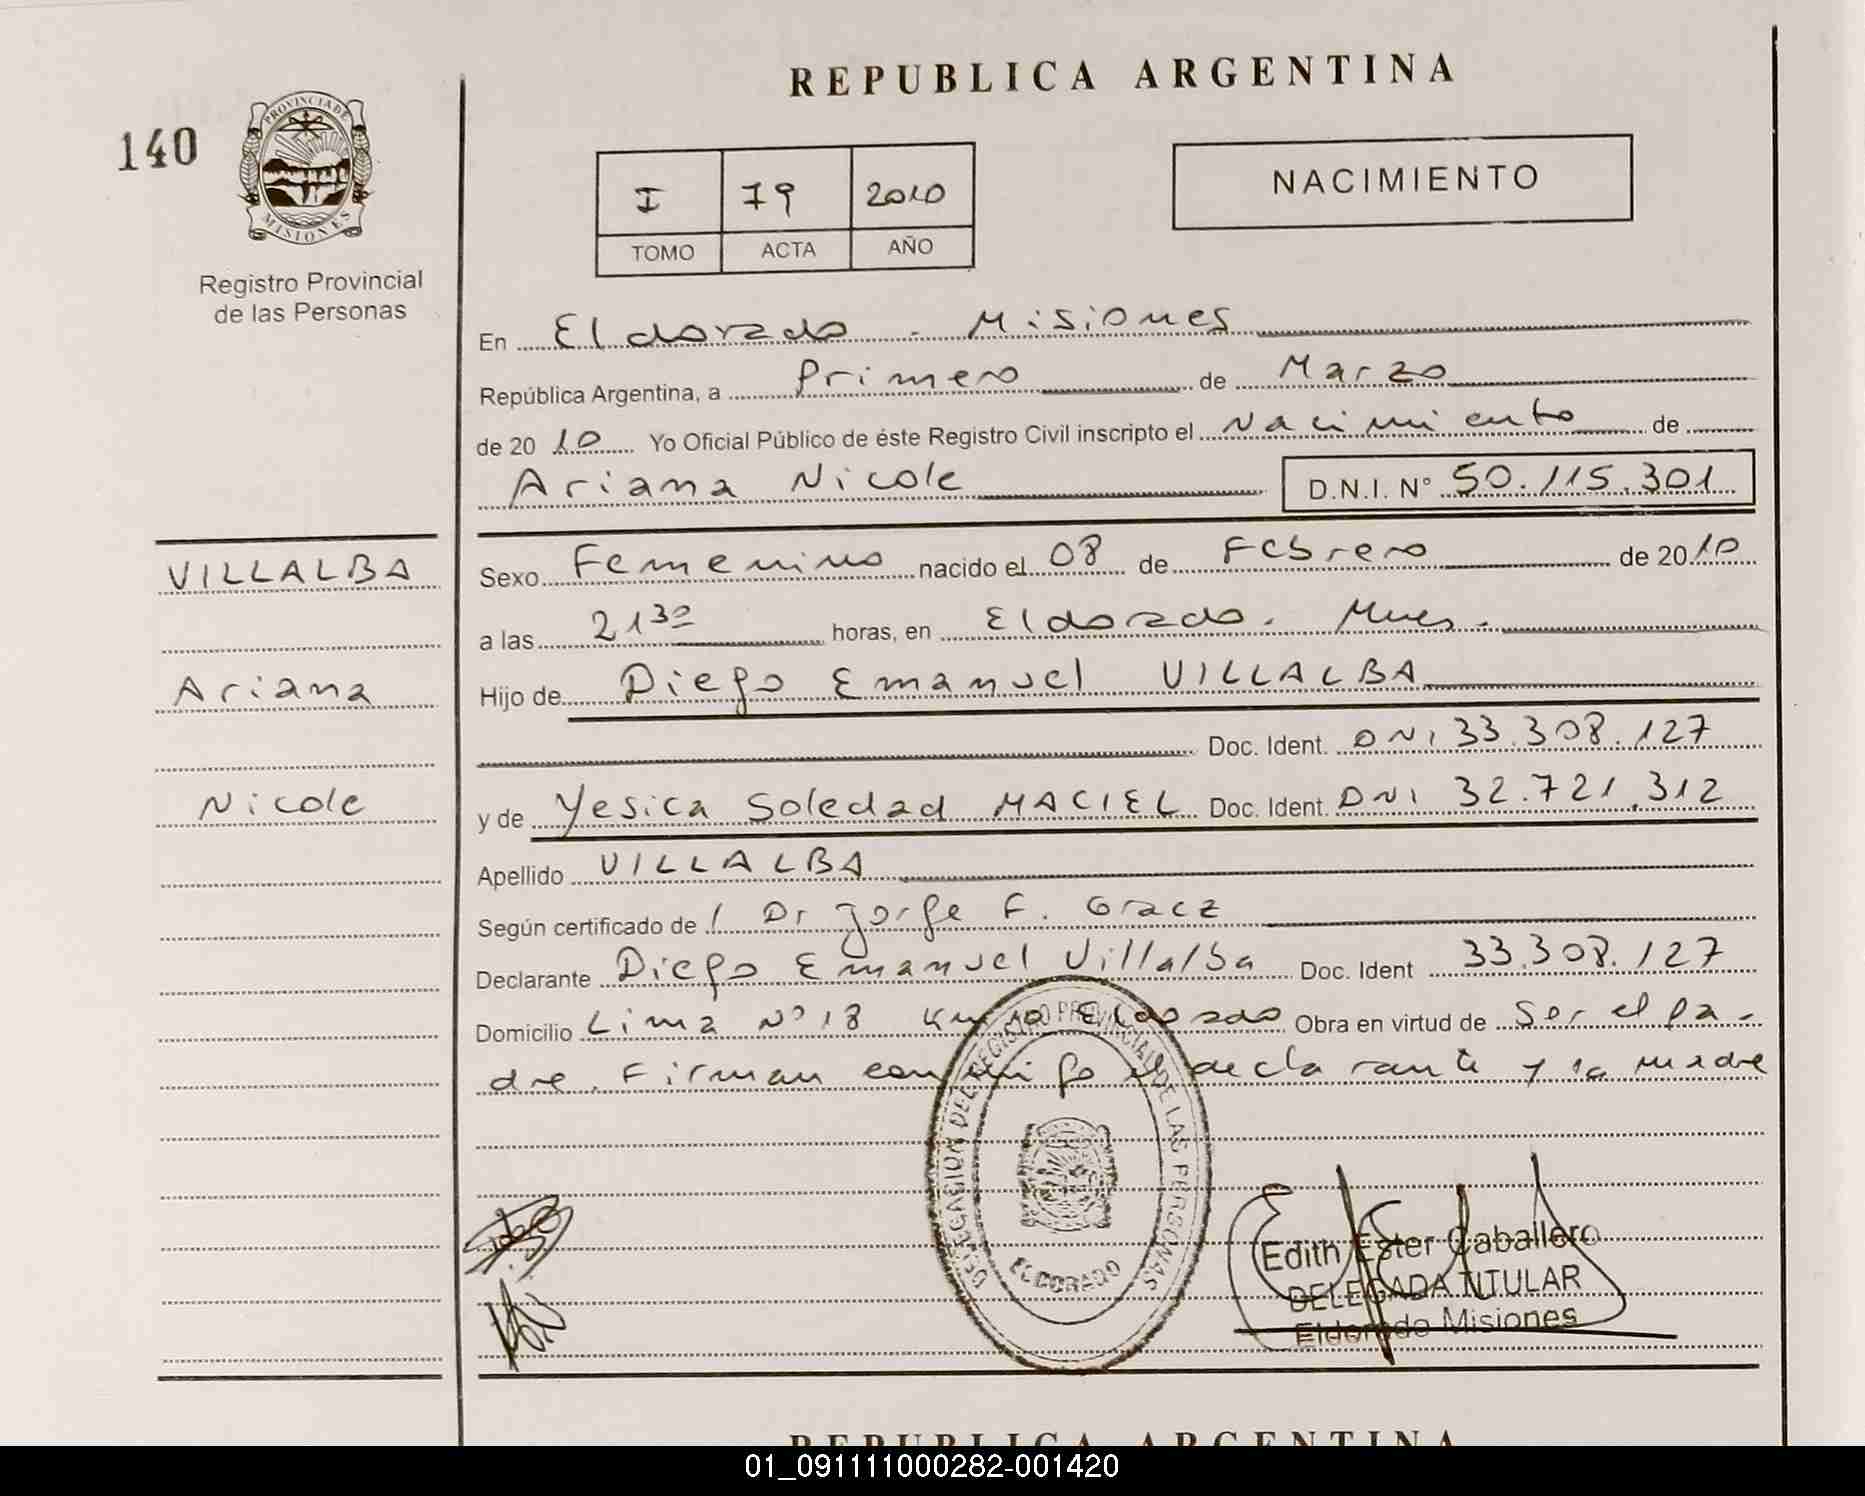 REPUBLICA ARGENTINA
140
PROVINCIA DE
MISIONES
Registro Provincial
de las Personas
I 79 2010
TOMO ACTA AÑO
NACIMIENTO
En Eldorado - Misiones
República Argentina, a Primero de Marzo
de 2010 Yo Oficial Público de éste Registro Civil inscripto el Nacimiento de
Ariana Nicole D.N.I. N° 50.115.301
VILLALBA
Ariana
Nicole
Sexo Femenino nacido el 08 de Febrero de 2010
a las 21 30 horas, en Eldorado. Mnes.
Hijo de Diego Emanuel VILLALBA
Doc. Ident. DNI 33.308.127
y de Yesica Soledad MACIEL Doc. Ident. DNI 32.721.312
Apellido VILLALBA
Según certificado de Dr Jorge F.
Declarante Diego Emanuel Villalba Doc. Ident 33.308.127
Domicilio Lima N° 18 Km 10 Eldorado Obra en virtud de Ser el pa-
dre. Firman conmigo el declarante y la madre
DELEGACION DEL REGISTRO PROVINCIAL DE LAS PERSONAS
ELDORADO
Edith Ester Caballero
DELEGADA TITULAR
Eldorado Misiones
REPUBLICA ARGENTINA
01_091111000282-001420